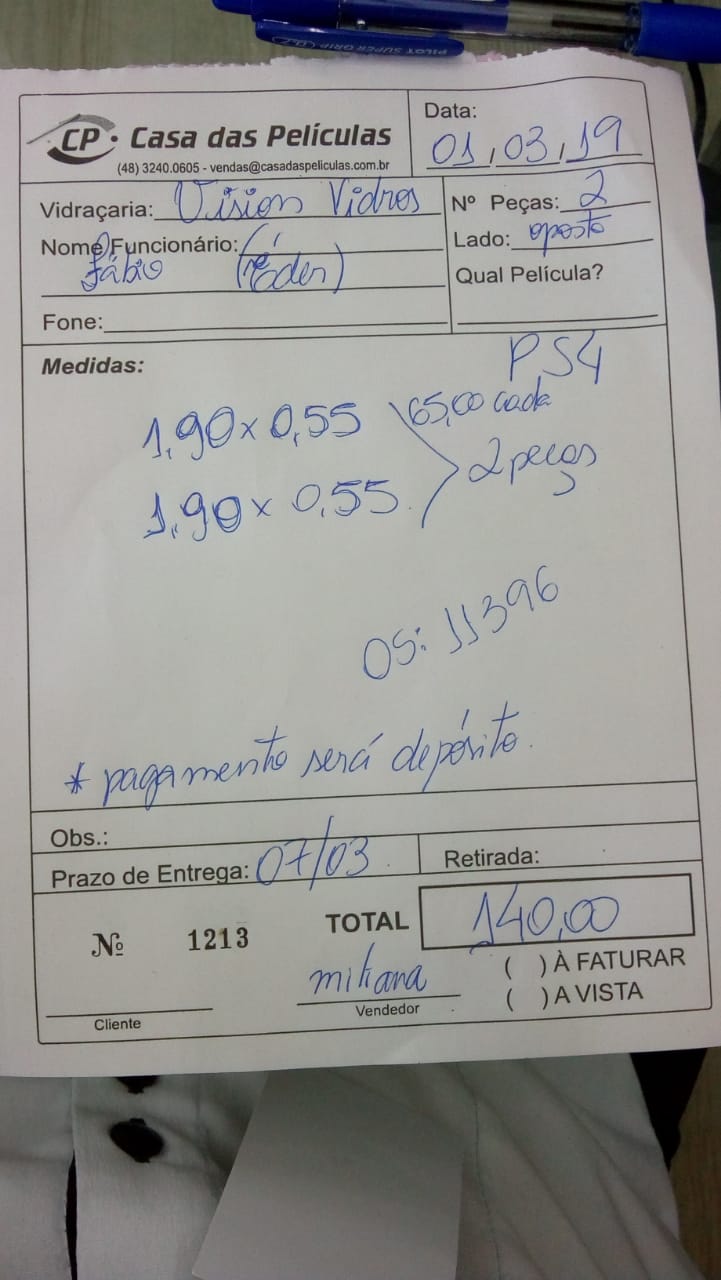 PILOT SUPER GRIP
CP · Casa das Películas
(48) 3240.0605 - vendas@casadaspeliculas.com.br
Data:
01, 03, 19
Vidraçaria: Vision Vidros
Nº Peças: 2
Nome Funcionário:
Fábio (Éder)
Lado: oposto
Qual Película?
Fone:
Medidas:
PS4
1,90 x 0,55
65,00 cada
2 peças
1,90 x 0,55
OS: 11396
* pagamento será depósito.
Obs.:
Prazo de Entrega: 07/03
Retirada:
Nº 1213
TOTAL 140,00
( ) À FATURAR
( ) A VISTA
Cliente
Vendedor